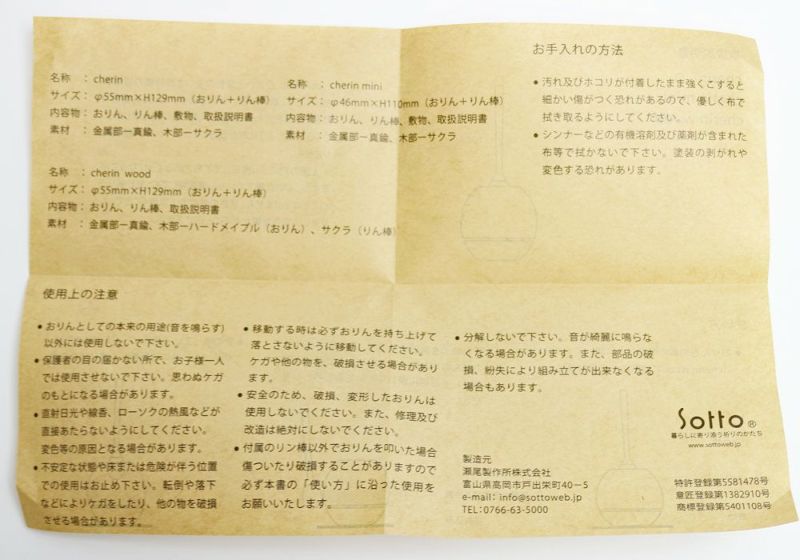 名称　：cherin
サイズ：φ55mm×H129mm（おりん＋りん棒）
内容物：おりん、りん棒、敷物、取扱説明書
素材　：金属部ー真鍮、木部ーサクラ
名称　：cherin mini
サイズ：φ46mm×H110mm（おりん＋りん棒）
内容物：おりん、りん棒、敷物、取扱説明書
素材　：金属部ー真鍮、木部ーサクラ
名称　：cherin wood
サイズ：φ55mm×H129mm（おりん＋りん棒）
内容物：おりん、りん棒、取扱説明書
素材　：金属部ー真鍮、木部ーハードメイプル（おりん）、サクラ（りん棒）
お手入れの方法
●汚れ及びホコリが付着したまま強くこすると
細かい傷がつく恐れがあるので、優しく布で
拭き取るようにしてください。
●シンナーなどの有機溶剤及び薬剤が含まれた
布等で拭かないで下さい。塗装の剥がれや
変色する恐れがあります。
使用上の注意
●おりんとしての本来の用途(音を鳴らす)
以外には使用しないで下さい。
●保護者の目の届かない所で、お子様一人
では使用させないで下さい。思わぬケガ
のもとになる場合があります。
●直射日光や線香、ローソクの熱風などが
直接あたらないようにしてください。
変色等の原因となる場合があります。
●不安定な状態や床または危険が伴う位置
での使用はお止め下さい。転倒や落下
などによりケガをしたり、他の物を破損
させる場合があります。
●移動する時は必ずおりんを持ち上げて
落とさないように移動してください。
ケガや他の物を、破損させる場合があり
ます。
●安全のため、破損、変形したおりんは
使用しないでください。また、修理及び
改造は絶対にしないでください。
●付属のリン棒以外でおりんを叩いた場合
傷ついたり破損することがありますので
必ず本書の「使い方」に沿った使用を
お願いいたします。
●分解しないで下さい。音が綺麗に鳴らな
くなる場合があります。また、部品の破
損、紛失により組み立てが出来なくなる
場合もあります。
製造元
瀬尾製作所株式会社
富山県高岡市戸出栄町40－5
e-mail: info@sottoweb.jp
TEL:0766-63-5000
Sotto®
暮らしに寄り添う祈りのかたち
www.sottoweb.jp
特許登録第5581478号
意匠登録第1382910号
商標登録第5401108号